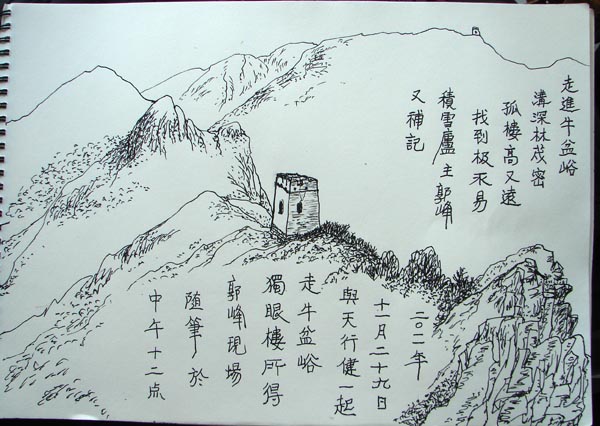 走進牛盆峪
溝深林茂密
孤樓高又遠
找到极不易
積雪廬主郭峰
又補記
二〇一一年
十一月二十九日
與天行健一起
走牛盆峪
獨眼樓所得
郭峰現場
随筆於
中午十二点